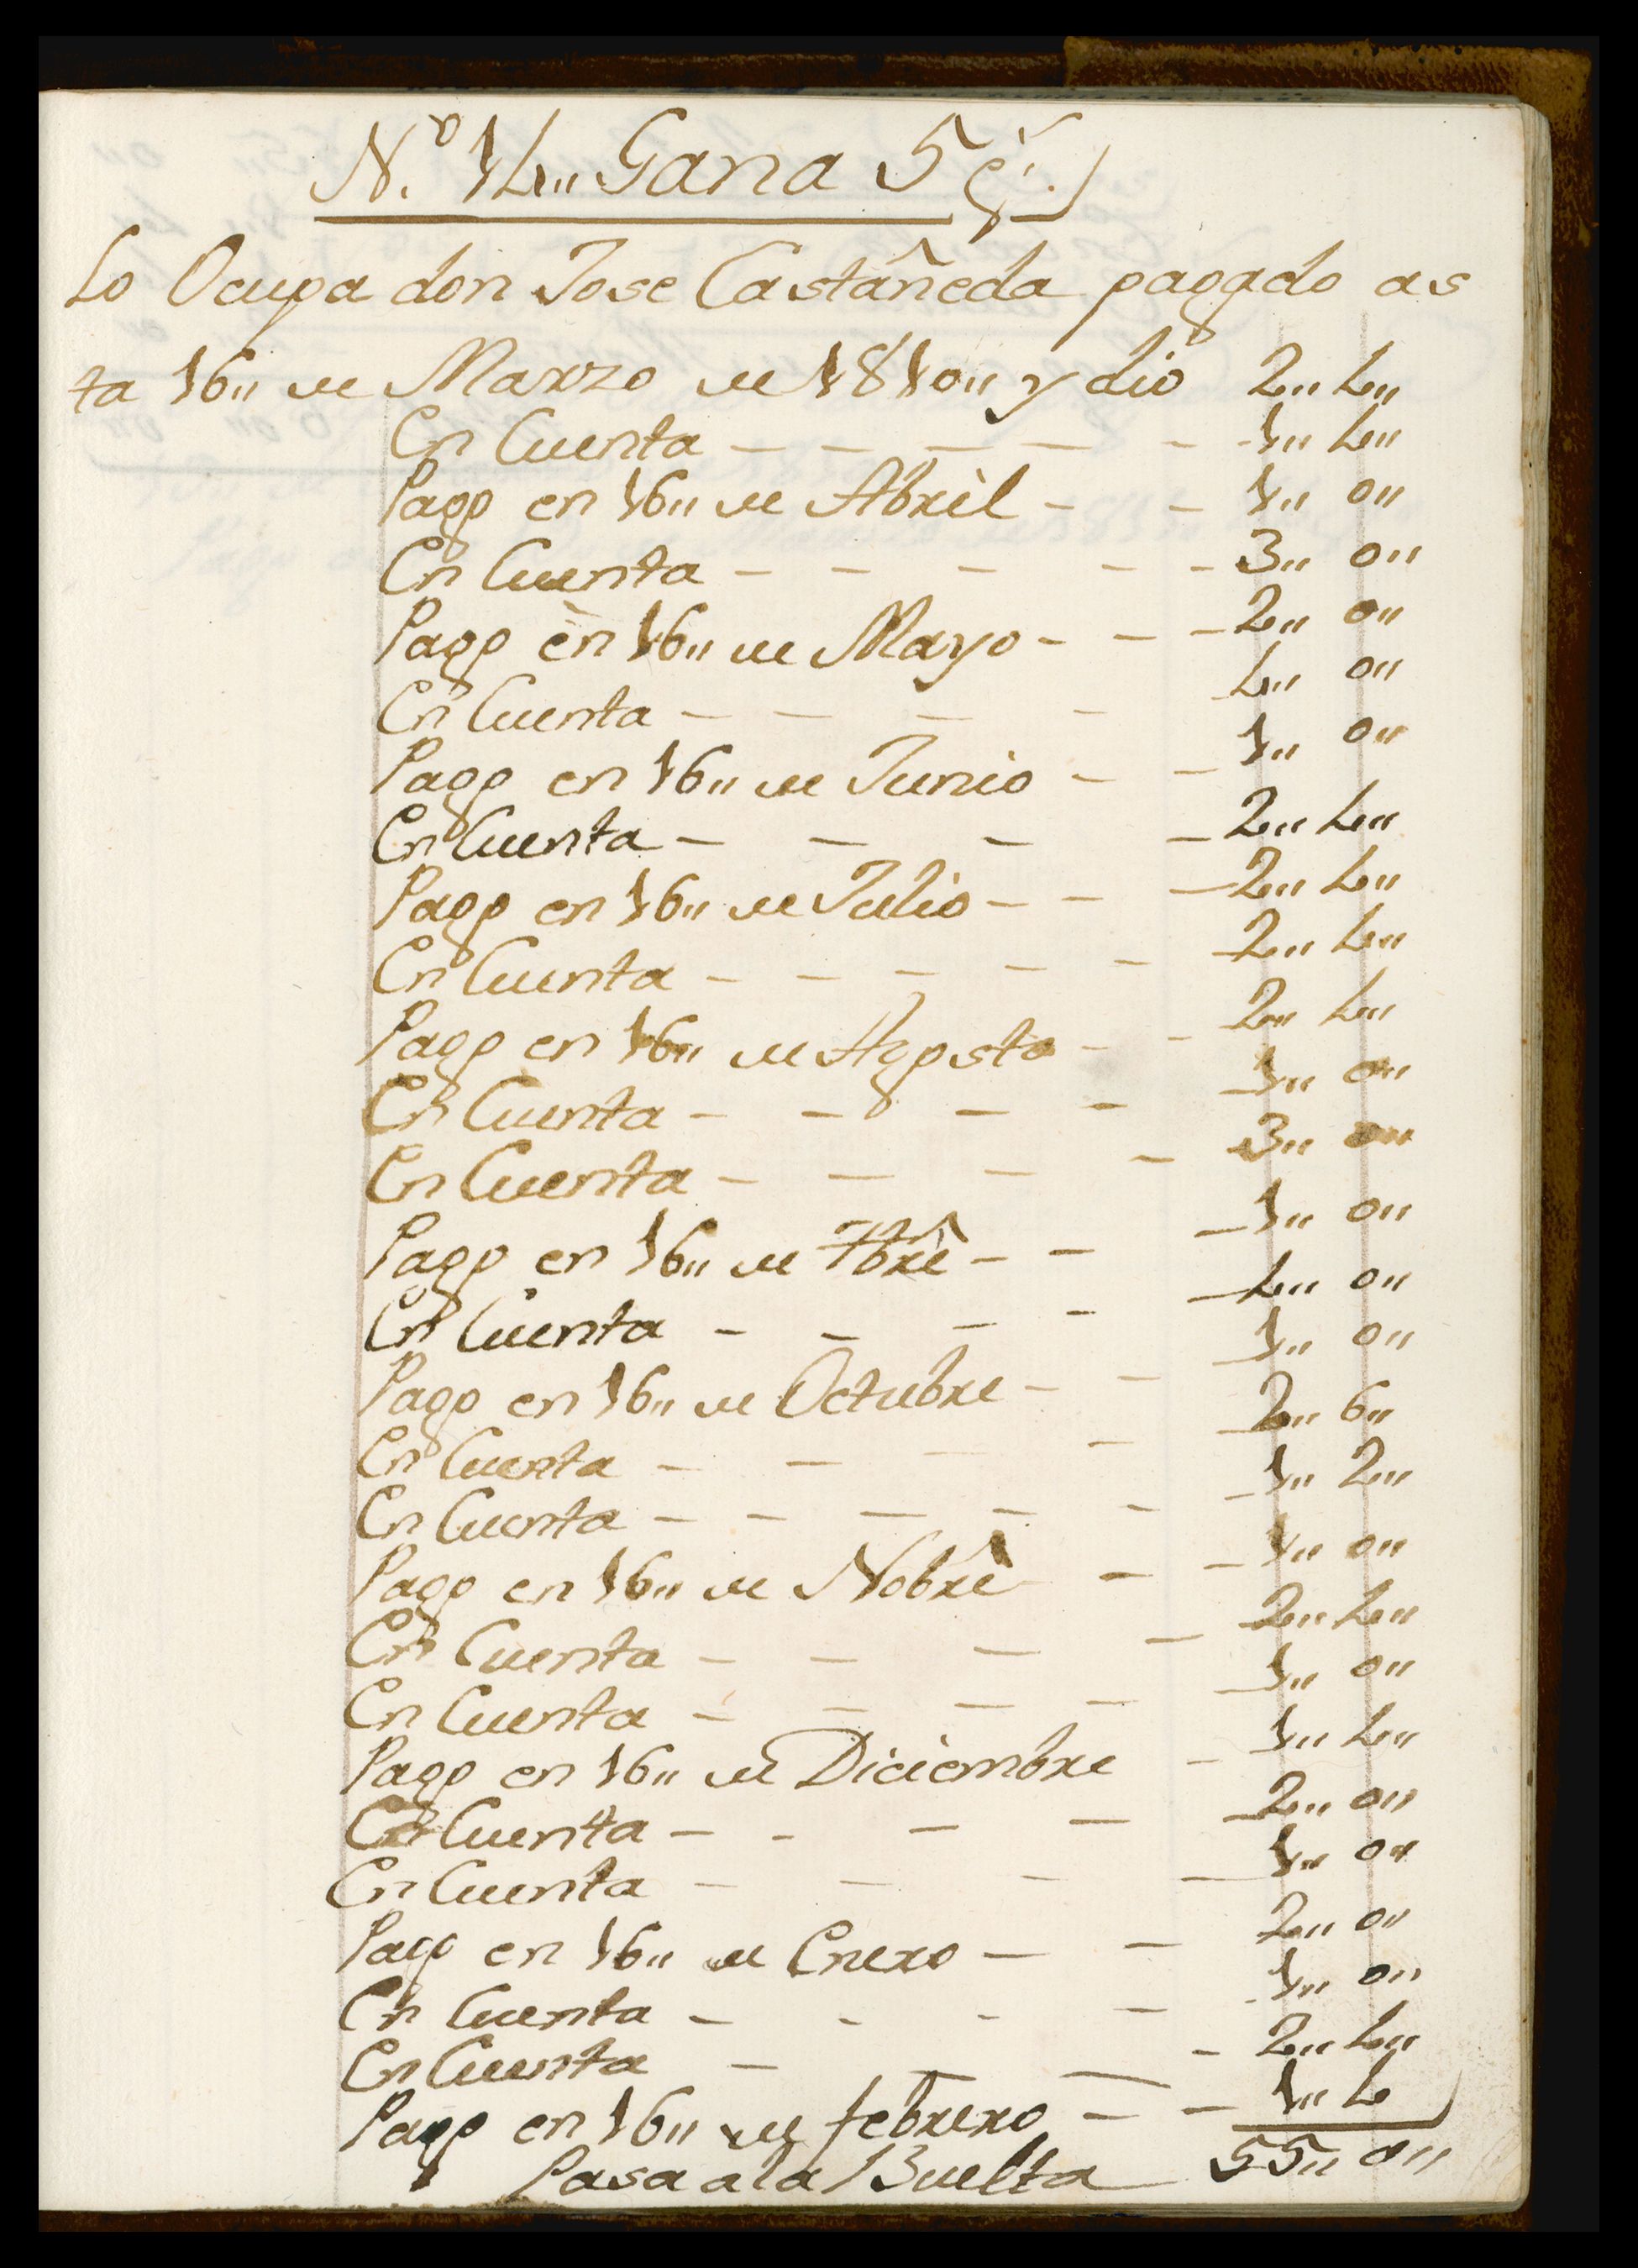 N.º 14,, Gana 5 p.s
Lo Ocupa don Jose Castañeda pagado as
ta 16,, de Marzo de 1810,, y dio 2,, 4,,
En Cuenta - - - - - 1,, 4,,
Pago en 16,, de Abril - - 1,, 0,,
En Cuenta - - - - - 3,, 0,,
Pago en 16,, de Mayo - - - 2,, 0,,
En Cuenta - - - - 4,, 0,,
Pago en 16,, de Junio - - 1,, 0,,
En Cuenta - - - - 2,, 4,,
Pago en 16,, de Julio - - - 2,, 4,,
En Cuenta - - - - - 2,, 4,,
Pago en 16,, de Agosto - - 2,, 4,,
En Cuenta - - - - 1,, 0,,
En Cuenta - - - - 3,, 0,,
Pago en 16,, de 7bre - - - 1,, 0,,
En Cuenta - - - - 4,, 0,,
Pago en 16,, de Octubre - - 1,, 0,,
En Cuenta - - - - 2,, 6,,
En Cuenta - - - - - 1,, 2,,
Pago en 16,, de Nobre - - 1,, 0,,
En Cuenta - - - - 2,, 4,,
En Cuenta - - - - 1,, 0,,
Pago en 16,, de Diciembre - 1,, 4,,
En Cuenta - - - - 2,, 0,,
En Cuenta - - - - 1,, 0,,
Pago en 16,, de Enero - - 2,, 0,,
En Cuenta - - - - 1,, 0,,
En Cuenta - - - - 2,, 4,,
Pago en 16,, de febrero - - 1,, 4
Pasa a la Buelta 55,, 0,,